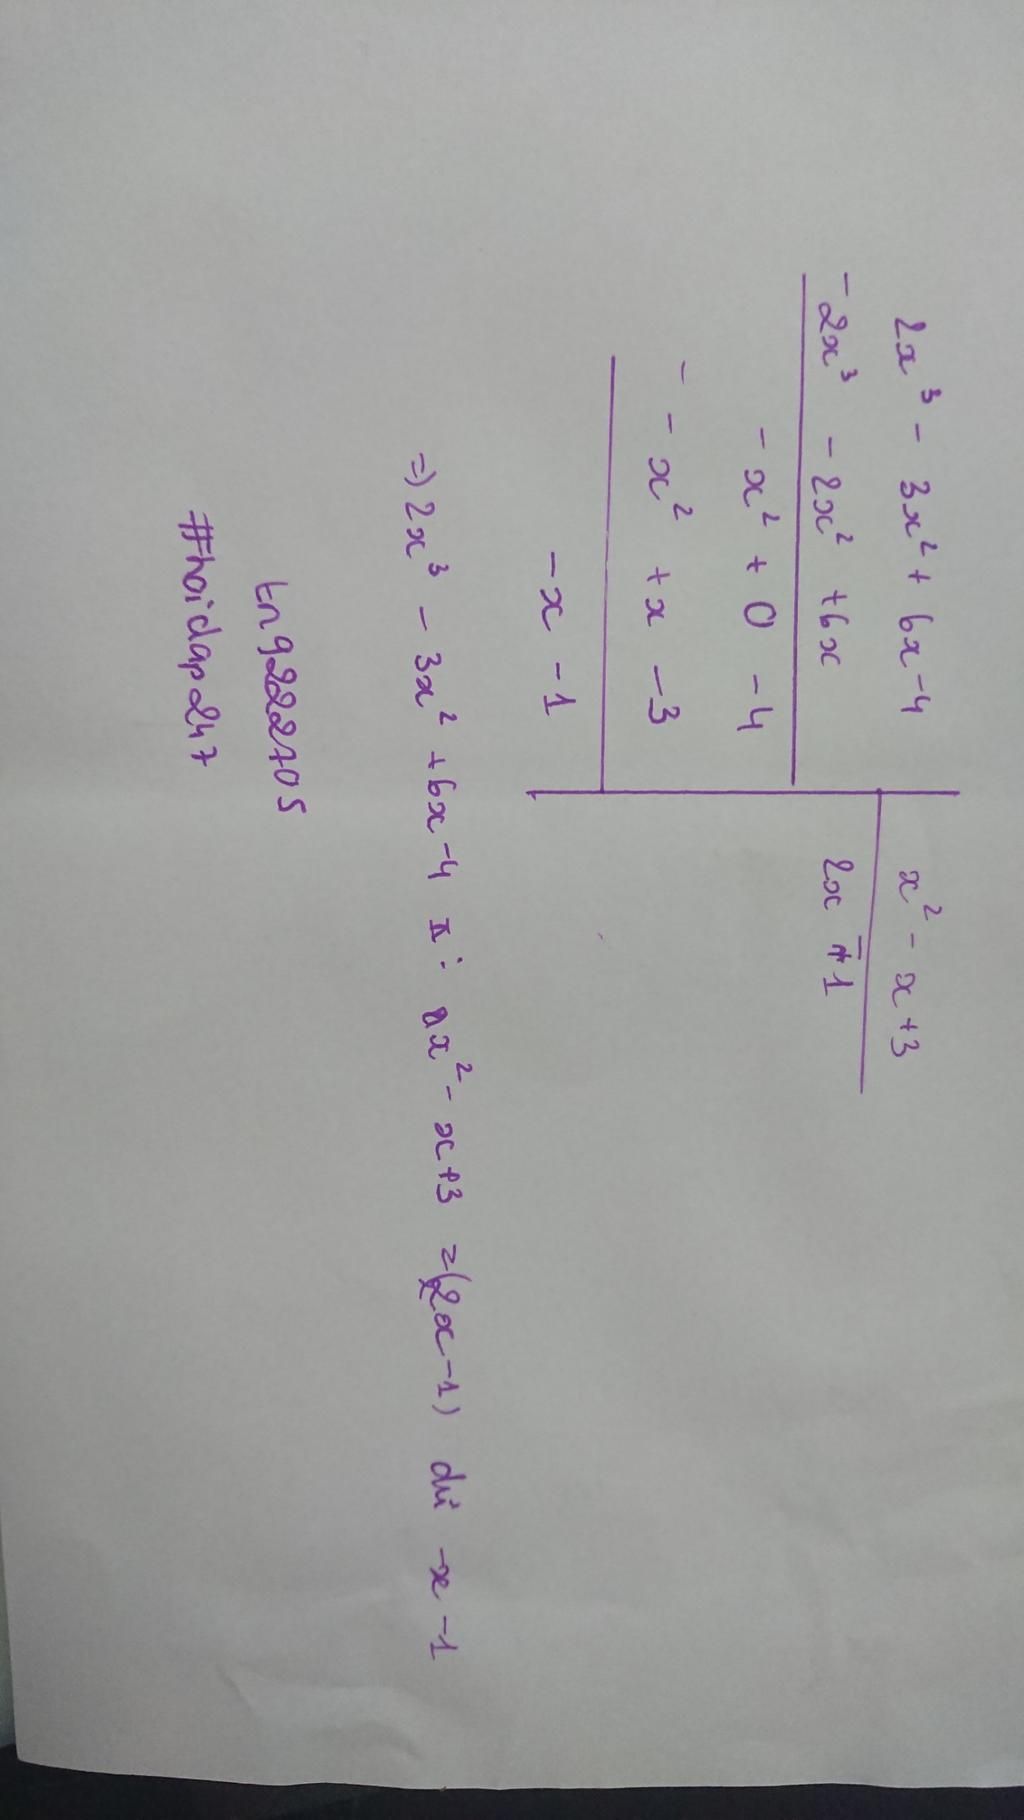 2x³ - 3x² + 6x - 4 | x² - x + 3
- 2x³ - 2x² + 6x | 2x - 1
- x² + 0 - 4
- - x² + x - 3
- x - 1
=) 2x³ - 3x² + 6x - 4 : x² - x + 3 = (2x - 1) dư -x - 1
tng222705
#hoidap247